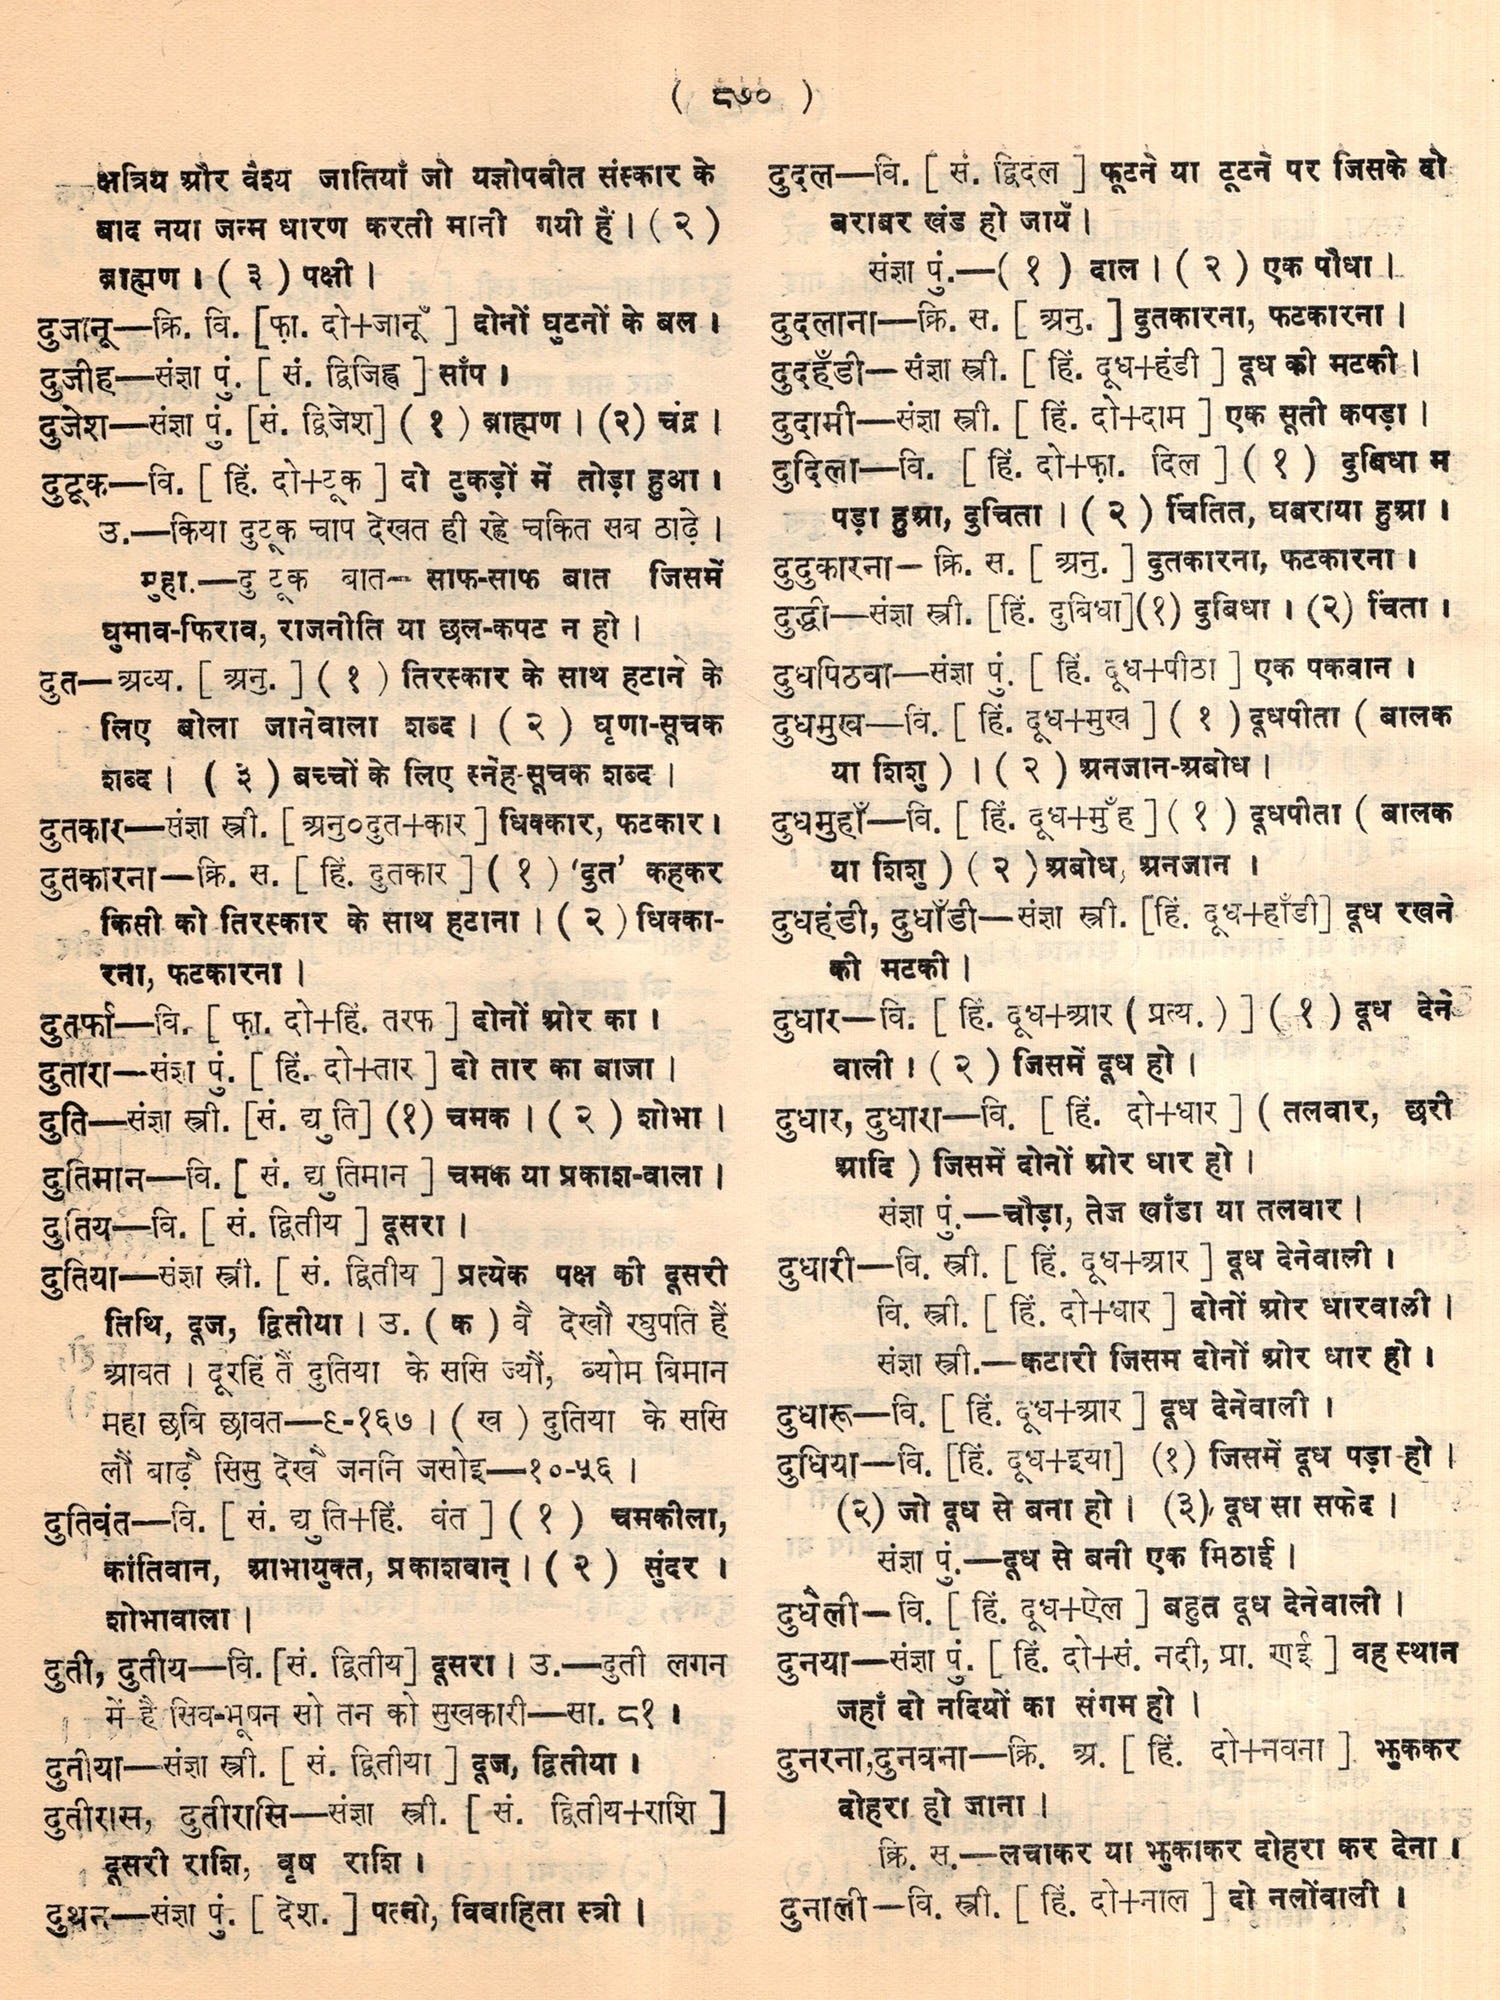 ( ८७० )
क्षत्रिय और वैश्य जातियाँ जो यज्ञोपवीत संस्कार के
बाद नया जन्म धारण करती मानी गयी हैं। ( २ )
ब्राह्मण। ( ३ ) पक्षी।
दुजानू—क्रि. वि. [फ़ा. दो+जानूँ ] दोनों घुटनों के बल।
दुजीह—संज्ञा पुं. [ सं. द्विजिह्व ] साँप।
दुजेश—संज्ञा पुं. [सं. द्विजेश] ( १ ) ब्राह्मण। (२) चंद्र।
दुटूक—वि. [ हिं. दो+टूक ] दो टुकड़ों में तोड़ा हुआ।
उ.—किया दुटूक चाप देखत ही रहे चकित सब ठाढ़े।
मुहा.—दु टूक बात— साफ-साफ बात जिसमें
घुमाव-फिराव, राजनीति या छल-कपट न हो।
दुत—अव्य. [ अनु. ] ( १ ) तिरस्कार के साथ हटाने के
लिए बोला जानेवाला शब्द। ( २ ) घृणा-सूचक
शब्द। ( ३ ) बच्चों के लिए स्नेह-सूचक शब्द।
दुतकार—संज्ञा स्त्री. [ अनु०दुत+कार ] धिक्कार, फटकार।
दुतकारना—क्रि. स. [ हिं. दुतकार ] ( १ ) ‘दुत’ कहकर
किसी को तिरस्कार के साथ हटाना। ( २ ) धिक्का-
रना, फटकारना।
दुतर्फा—वि. [ फ़ा. दो+हिं. तरफ ] दोनों ओर का।
दुतारा—संज्ञा पुं. [ हिं. दो+तार ] दो तार का बाजा।
दुति—संज्ञा स्त्री. [सं. द्युति] (१) चमक। ( २ ) शोभा।
दुतिमान—वि. [ सं. द्युतिमान ] चमक या प्रकाश-वाला।
दुतिय—वि. [ सं. द्वितीय ] दूसरा।
दुतिया—संज्ञा स्त्री. [ सं. द्वितीय ] प्रत्येक पक्ष की दूसरी
तिथि, दूज, द्वितीया। उ. ( क ) वै देखौ रघुपति हैं
आवत। दूरहिं तैं दुतिया के ससि ज्यौं, ब्योम बिमान
महा छबि छावत—९-१६७। ( ख ) दुतिया के ससि
लौं बाढ़ै सिसु देखै जननि जसोइ—१०-५६।
दुतिवंत—वि. [ सं. द्युति+हिं. वंत ] ( १ ) चमकीला,
कांतिवान, आभायुक्त, प्रकाशवान्। ( २ ) सुंदर।
शोभावाला।
दुती, दुतीय—वि. [सं. द्वितीय] दूसरा। उ.—दुती लगन
में है सिव-भूषन सो तन को सुखकारी—सा. ८१।
दुतीया—संज्ञा स्त्री. [ सं. द्वितीया ] दूज, द्वितीया।
दुतीरास, दुतीरासि—संज्ञा स्त्री. [ सं. द्वितीय+राशि ]
दूसरी राशि, वृष राशि।
दुथन—संज्ञा पुं. [ देश. ] पत्नी, विवाहिता स्त्री।
दुदल—वि. [ सं. द्विदल ] फूटने या टूटने पर जिसके दो
बराबर खंड हो जायँ।
संज्ञा पुं.—( १ ) दाल। ( २ ) एक पौधा।
दुदलाना—क्रि. स. [ अनु. ] दुतकारना, फटकारना।
दुदहँडी—संज्ञा स्त्री. [ हिं. दूध+हंडी ] दूध की मटकी।
दुदामी—संज्ञा स्त्री. [ हिं. दो+दाम ] एक सूती कपड़ा।
दुदिला—वि. [ हिं. दो+फ़ा. दिल ] ( १ ) दुबिधा म
पड़ा हुआ, दुचिता। ( २ ) चिंतित, घबराया हुआ।
दुदुकारना— क्रि. स. [ अनु. ] दुतकारना, फटकारना।
दुद्धी—संज्ञा स्त्री. [हिं. दुबिधा](१) दुबिधा। (२) चिंता।
दुधपिठवा—संज्ञा पुं. [ हिं. दूध+पीठा ] एक पकवान।
दुधमुख—वि. [ हिं. दूध+मुख ] ( १ ) दूधपीता ( बालक
या शिशु )। ( २ ) अनजान-अबोध।
दुधमुहाँ—वि. [ हिं. दूध+मुँह ] ( १ ) दूधपीता ( बालक
या शिशु ) ( २ ) अबोध, अनजान।
दुधहंडी, दुधाँडी—संज्ञा स्त्री. [हिं. दूध+हाँडी] दूध रखने
की मटकी।
दुधार—वि. [ हिं. दूध+आर ( प्रत्य. ) ] ( १ ) दूध देने
वाली। ( २ ) जिसमें दूध हो।
दुधार, दुधारा—वि. [ हिं. दो+धार ] ( तलवार, छरी
आदि ) जिसमें दोनों ओर धार हो।
संज्ञा पुं.—चौड़ा, तेज खाँडा या तलवार।
दुधारी—वि. स्त्री. [ हिं. दूध+आर ] दूध देनेवाली।
वि. स्त्री. [ हिं. दो+धार ] दोनों ओर धारवाली।
संज्ञा स्त्री.—कटारी जिसम दोनों ओर धार हो।
दुधारू—वि. [ हिं. दूध+आर ] दूध देनेवाली।
दुधिया—वि. [हिं. दूध+इया] (१) जिसमें दूध पड़ा हो।
(२) जो दूध से बना हो। (३) दूध सा सफेद।
संज्ञा पुं.—दूध से बनी एक मिठाई।
दुधैली—वि. [ हिं. दूध+ऐल ] बहुत दूध देनेवाली।
दुनया—संज्ञा पुं. [ हिं. दो+सं. नदी, प्रा. णई ] वह स्थान
जहाँ दो नदियों का संगम हो।
दुनरना,दुनवना—क्रि. अ. [ हिं. दो+नवना ] झुककर
दोहरा हो जाना।
क्रि. स.—लचाकर या झुकाकर दोहरा कर देना।
दुनाली—वि. स्त्री. [ हिं. दो+नाल ] दो नलोंवाली।